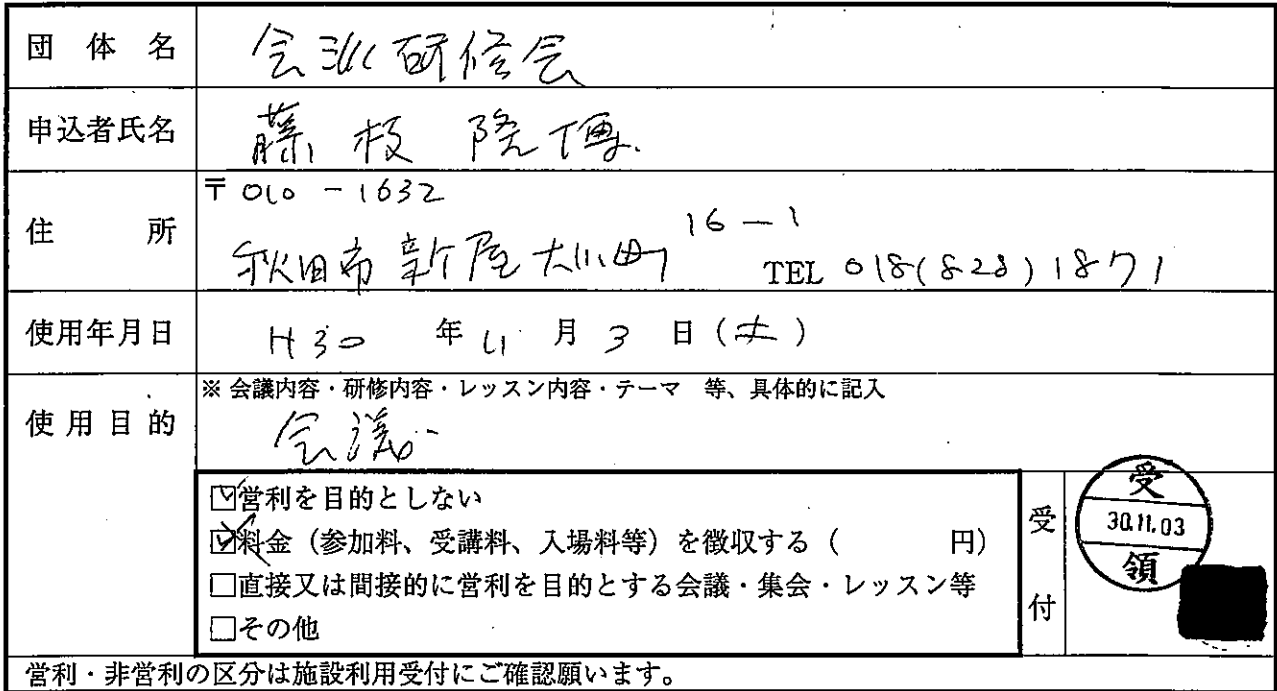 団体名 会派研修会
申込者氏名 藤枝 隆博
住所 〒010-1632
秋田市新屋大川町 16-1 TEL 018(828)1871
使用年月日 H30 年 11 月 3 日 (土)
※ 会議内容・研修内容・レッスン内容・テーマ 等、具体的に記入
使用目的 会議
☑営利を目的としない
☑料金(参加料、受講料、入場料等)を徴収する( 円)
□直接又は間接的に営利を目的とする会議・集会・レッスン等
□その他
受付
受
30.11.03
領
営利・非営利の区分は施設利用受付にご確認願います。